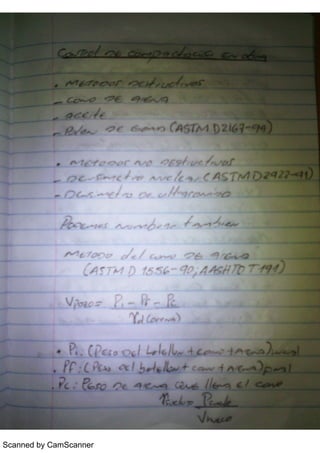 Control de compactación en obra
• Metodos destructivos
- cono de arena
- aceite
- Balon de goma (ASTM D2167-94)
• metodos no destructivos
- Densimetro nuclear (ASTM D2922-91)
- Densimetro de ultrasonido
Podemos nombrar tambien
metodo del cono de arena
(ASTM D 1556-90, AASHTO T 191)
Vpozo= Pi - Pf - Pc
γd (arena)
• Pi: (Peso del botellon + cono + arena) inicial
• Pf: (Peso del botellon + cono + arena) final
. Pc: Peso de arena que llena el cono
γsuelo= Psuelo
Vhueco
Scanned by CamScanner